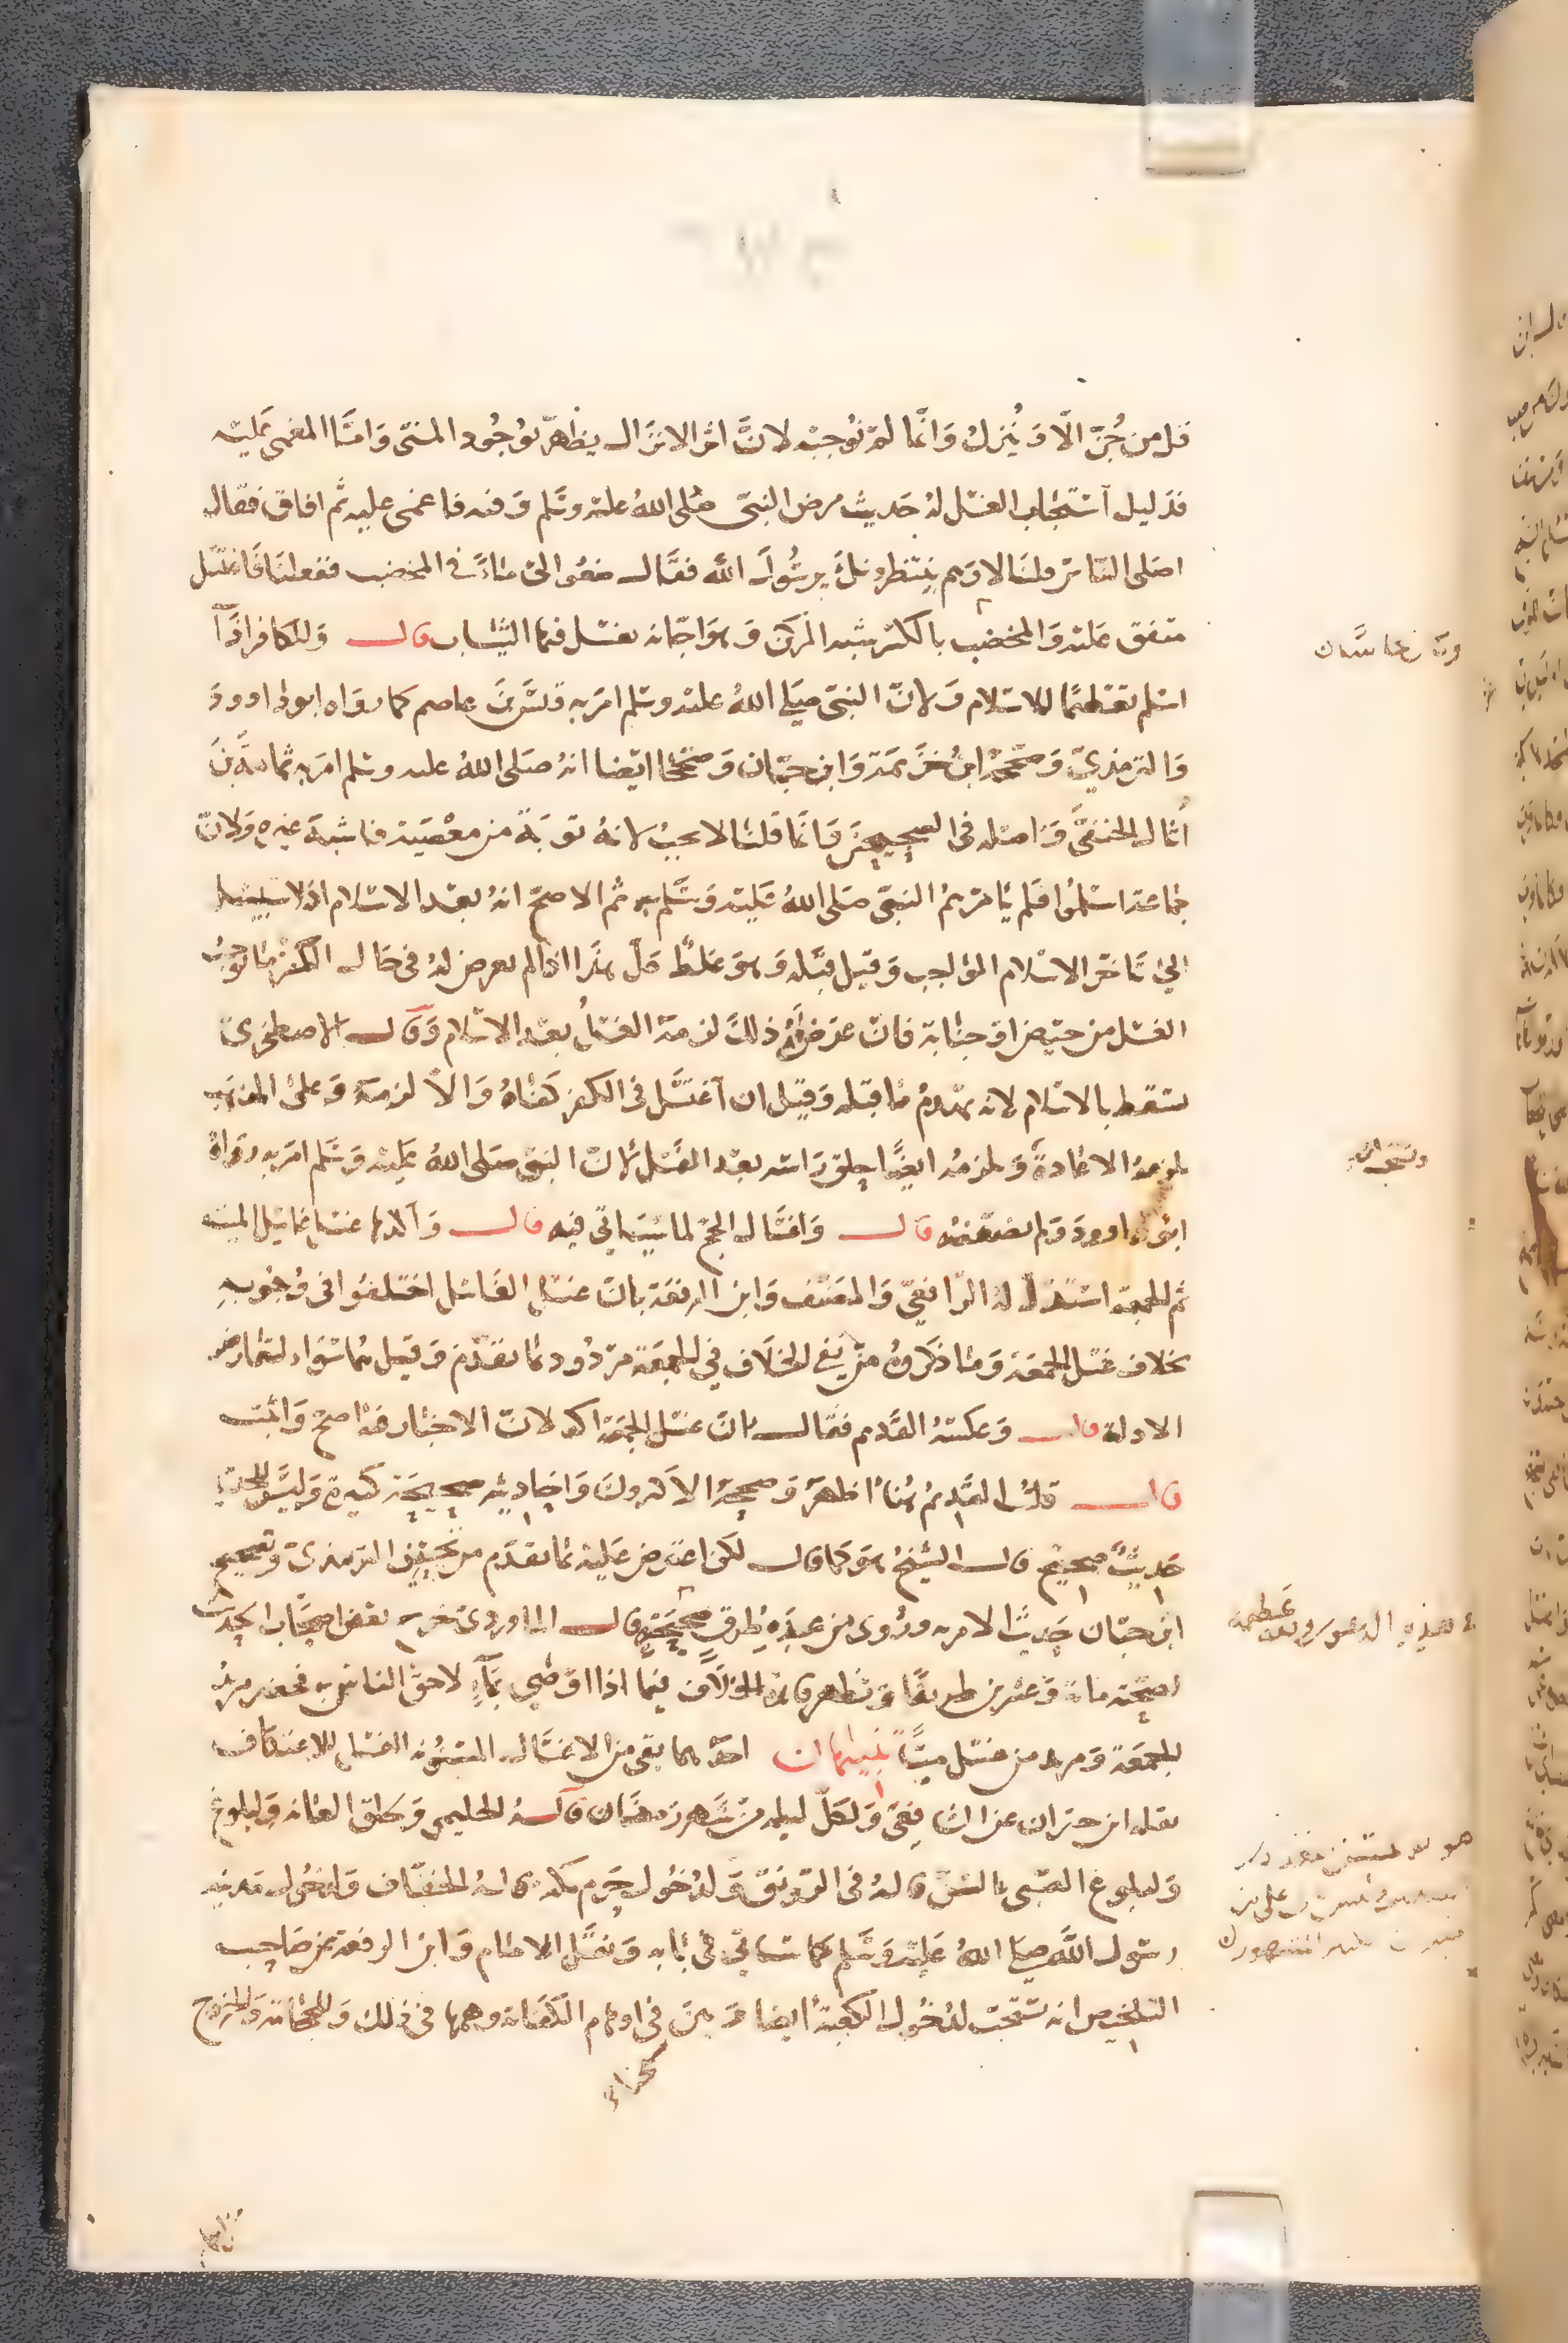 قل من جُنّ الّا وَيُنزلُ وَانّما لمْ نُوجبْه لانَّ امْر الانزال يظهر بوُجُود المنىّ وَامّا المغمى عَليْه
فدَليل اسْتحباب الغسْل لهُ حَديث مرض النبىّ صَلى اللهُ عليْه وسَّلم وَفيه فاغمى عليه ثم افاق فقال
اصَلى النَّاسُ قلنَا لا وَهم ينتظرونكَ يرسُولَ الله فقَال ضعُوا لىْ مَاءً في المخضب ففعلنَا فَاغتسَل
متفق عَليْه وَالمخضب بالكسْر شبه المركن وَهوَ اجّانه يغسْل فيها الثيَاب قال وَللكافر اذَا
اسْلم تعْظيمًا للاسْلام وَلانّ النبىّ صَلى اللهُ عليْه وسَلم امَر به قيْسَ بنَ عاصم كما روَاه ابوداوودَ
وَالترمذيّ وَصَحّحَهُ ابنُ خزَيمَة وَابن حبّان وَصَحّحَا ايْضا انهُ صَلى اللهُ عليه وسَلم امَر به ثمامَةَ بنَ
أثال الحنفيَّ وَاصْله فى الصحيحيْن وَانَّما قلنَا لا يجبُ لانهُ توبَة من معْصيَة فاشبهَ غيره وَلانّ
جمَاعة اسْلمُوا فلم يَامُرْهمُ النبىّ صَلى اللهُ عَليْه وَسَّلم به ثم الاصحّ انهُ بعْد الاسْلام اذ لا سَبيل
الى تَاخيْر الاسْلام الوَاجب وَقيْل قبْله وَهوَ غلطٌ كلّ هَذا اذا لم يعرض لهُ فى حَال الكفر مَا يُوجبُ
الغسْل من حيْض او جنَابة فانْ عرَض لَهُ ذلكَ لزمَهُ الغسْلُ بعْد الاسْلام وَقال الاصطخرى
يسْقط بالاسْلام لانه يهْدمُ مَا قبله وَقيْل ان اغتسَل فى الكفر كفَاهُ وَالّا لزمَهُ وَعلى المذهَب
يلزمهُ الاعَادةُ وَيلزمهُ ايضًا حلق رَاسه بعْد الغسْل لانّ النبىّ صَلى اللهُ عَليْه وَسَلم امَر به رَواهُ
ابُوداوودَ وَلم يضعّفهُ قال وَاغسَال الحجّ لما سَيَاتى فيه قال وَآكدها غسْل غاسِل الميت
ثم الجمعة اسْتدَلّ لهُ الرّافعىّ وَالمصَنف وَابن الرفعَة بانّ غسْل الغَاسل اختلفُوا فى وُجُوبهِ
بخلاف غسْل الجمعَة وَمَا ذكرُوهُ منْ نفى الخلَاف في الجمعَة مرْدُود بمَا تقدّم وَقيْل هُما سَوَاء لتعَارض
الادلة قال وَعكسَهُ القَديم فقال انّ غسْل الجمعَة اكد لانّ الاخبَار فيْه اصحّ وَاثبت
قال قلتُ القَديمُ هُنا اظهرُ وَصحّحهُ الاكثرونَ وَاحَاديثه صحيْحَة كثيْرة وَليْسَ للجَديْد
حَديثٌ صحيْح قال الشيخُ هوَ كمَا قال لكن اعترض عَليْه بمَا تقدّم من تحسِيْن الترمذىّ وَتصحيح
ابن حبّان حَديْثَ الامر به ورُوى من عدّة طرق صَحيْحَة قال الماوردىّ خرّج بعْض اصحَاب الحَديث
لصحّته مائة وَعشرين طريقًا وَتظهر فائدة الخلَاف فيمَا اذا اوْصَى بمَاءٍ لاحقّ الناس به فحضر مريْدٌ
للجمعَة وَمريد من غسْل ميتٍ تنبيْهَان احدهما بقى من الاغسَال المسنُونة الغسْل للاعتكاف
نقله ابن خيران عن الشافعىّ وَلكلّ ليله منْ شَهر رَمضَان قالهُ الحليمى وَلحلق العَانة وَلبلوغ
وَلبلوغ الصَّبى بالسّن قالهُ فى الرّونق وَلدُخُول حَرم مكه قالهُ الخفّاف وَلدخُول مَدينة
رسُول اللهِ صَلى اللهُ عَليْه وَسَّلم كمَا سَيَاتى فى بَابه وَنقلَ الامَام وَابن الرفعة عن صَاحِب
التلخيص انه يَسْتحبّ لدُخُول الكعبَة ايضا وَبيّنَ فى اوهَام الكفَاية وهمها فى ذلك وَللحجامَة وَللخروج